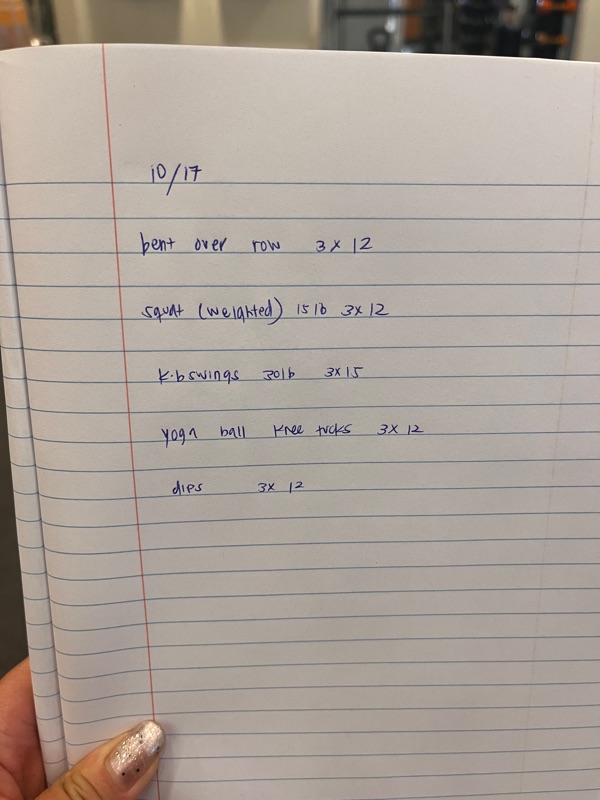 10/17
bent over row 3 x 12
squat (weighted) 15 lb 3x12
K.b swings 30lb 3x15
yoga ball knee tucks 3x 12
dips 3x 12